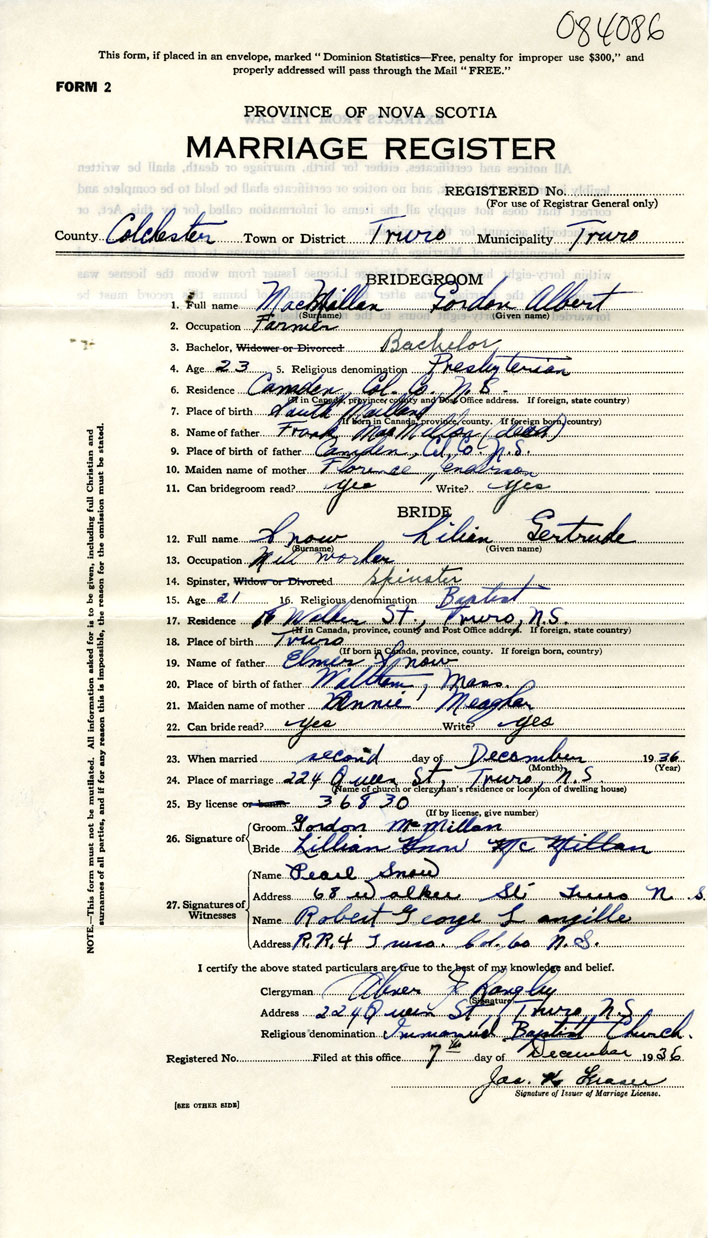 084086
This form, if placed in an envelope, marked “Dominion Statistics—Free, penalty for improper use $300,” and
properly addressed will pass through the Mail “FREE.”
FORM 2
PROVINCE OF NOVA SCOTIA
MARRIAGE REGISTER
REGISTERED No.
(For use of Registrar General only)
County Colchester Town or District Truro Municipality Truro
BRIDEGROOM
1. Full name MacMillan Gordon Albert
(Surname) (Given name)
2. Occupation Farmer
3. Bachelor, Widower or Divorced Bachelor
4. Age 23 5. Religious denomination Presbyterian
6. Residence Camden, Col. Co., N.S.
(If in Canada, province, county and Post Office address. If foreign, state country)
7. Place of birth South Maitland
(If born in Canada, province, county. If foreign born, country)
8. Name of father Frank MacMillan (dec'd)
9. Place of father Camden, Col. Co. N.S.
10. Maiden name of mother Florence
11. Can bridegroom read? yes Write? yes
BRIDE
12. Full name Snow Lilian Gertrude
(Surname) (Given name)
13. Occupation Mill worker
14. Spinster, Widow or Divorced Spinster
15. Age 21 16. Religious denomination Baptist
17. Residence Walker St., Truro, N.S.
(If in Canada, province, county and Post Office address. If foreign, state country)
18. Place of birth Truro
(If born in Canada, province, county. If foreign born, country)
19. Name of father Elmer Snow
20. Place of birth of father Waltham, Mass.
21. Maiden name of mother Annie Meagher
22. Can bride read? yes Write? yes
23. When married second day of December 1936
(Month) (Year)
24. Place of marriage 224 Queen St., Truro, N.S.
(Name of church or clergyman's residence or location of dwelling house)
25. By license or banns 36830
(If by license, give number)
26. Signature of
Groom Gordon McMillan
Bride Lillian Mc Millan
27. Signatures of Witnesses
Name Pearl Snow
Address 68 Walker St Truro N.S.
Name Robert George Langille
Address R.R.4 Truro. Col. Co N.S.
I certify the above stated particulars are true to the best of my knowledge and belief.
Clergyman Abner J Langley
(Signature)
Address 224 Queen St, Truro, N.S.
Religious denomination Immanuel Baptist Church.
Registered No. Filed at this office 7th day of December 1936
Jas. K. Fraser
Signature of Issuer of Marriage License.
[SEE OTHER SIDE]
NOTE.—This form must not be mutilated. All information asked for is to be given, including full Christian and
surnames of all parties, and if for any reason this is impossible, the reason for the omission must be stated.